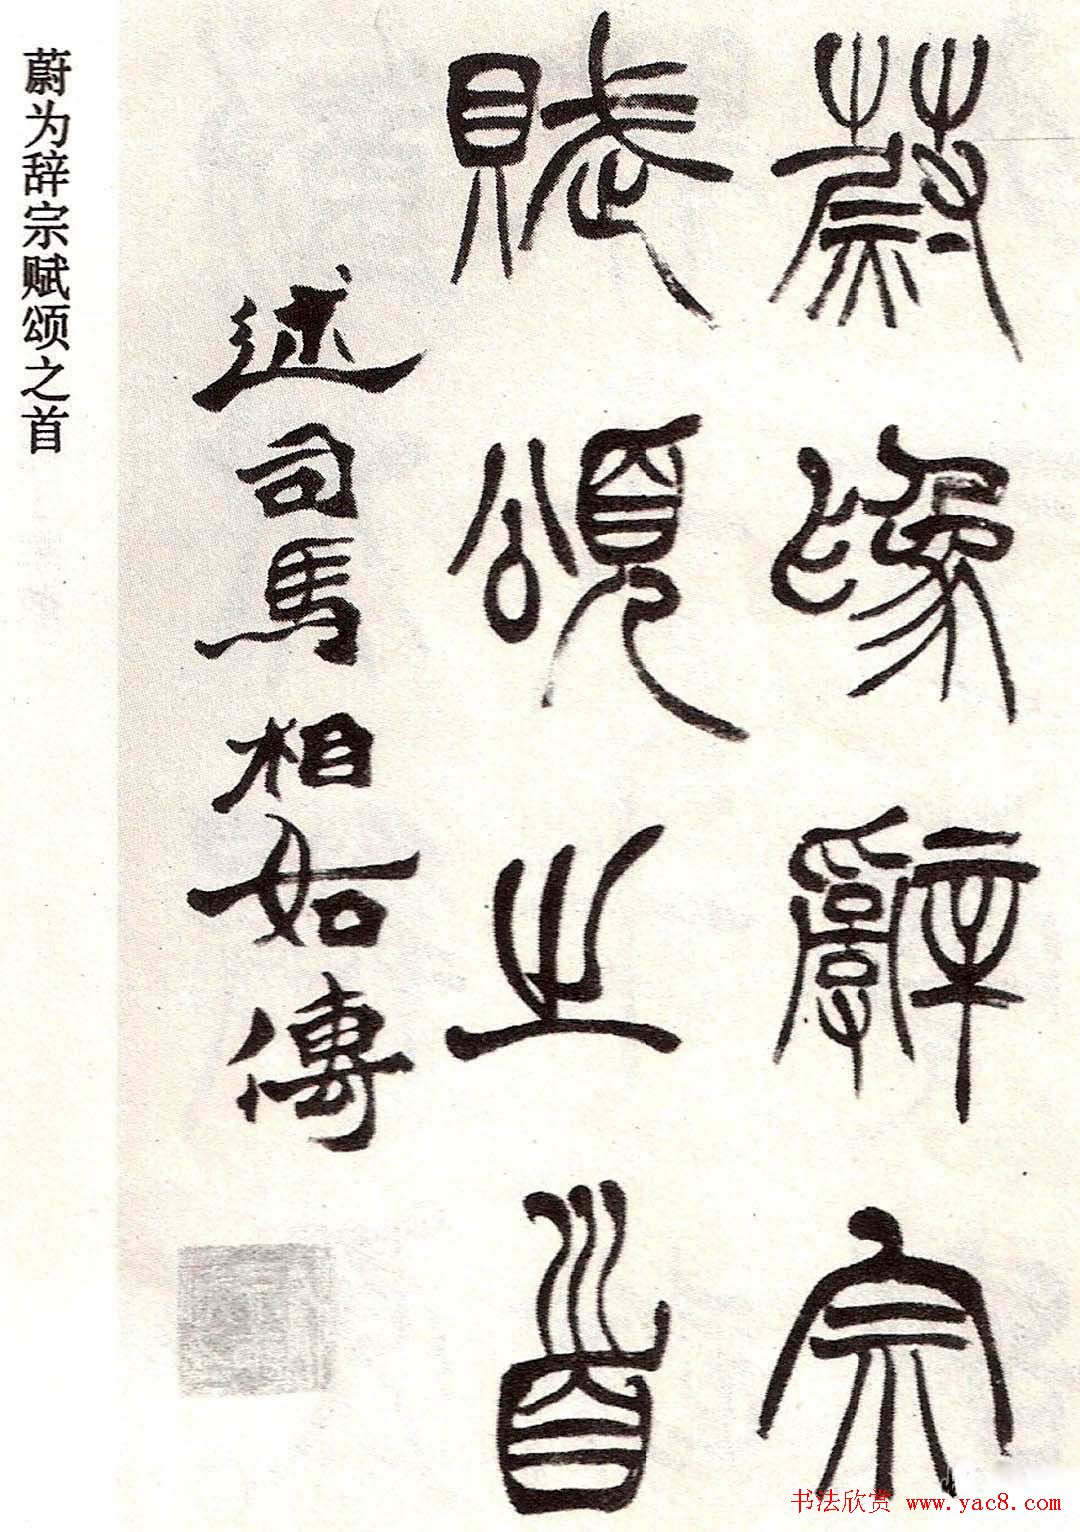 蔚為辭宗
賦頌之首
述司馬相如傳
蔚为辞宗赋颂之首
书法欣赏 www.yac8.com